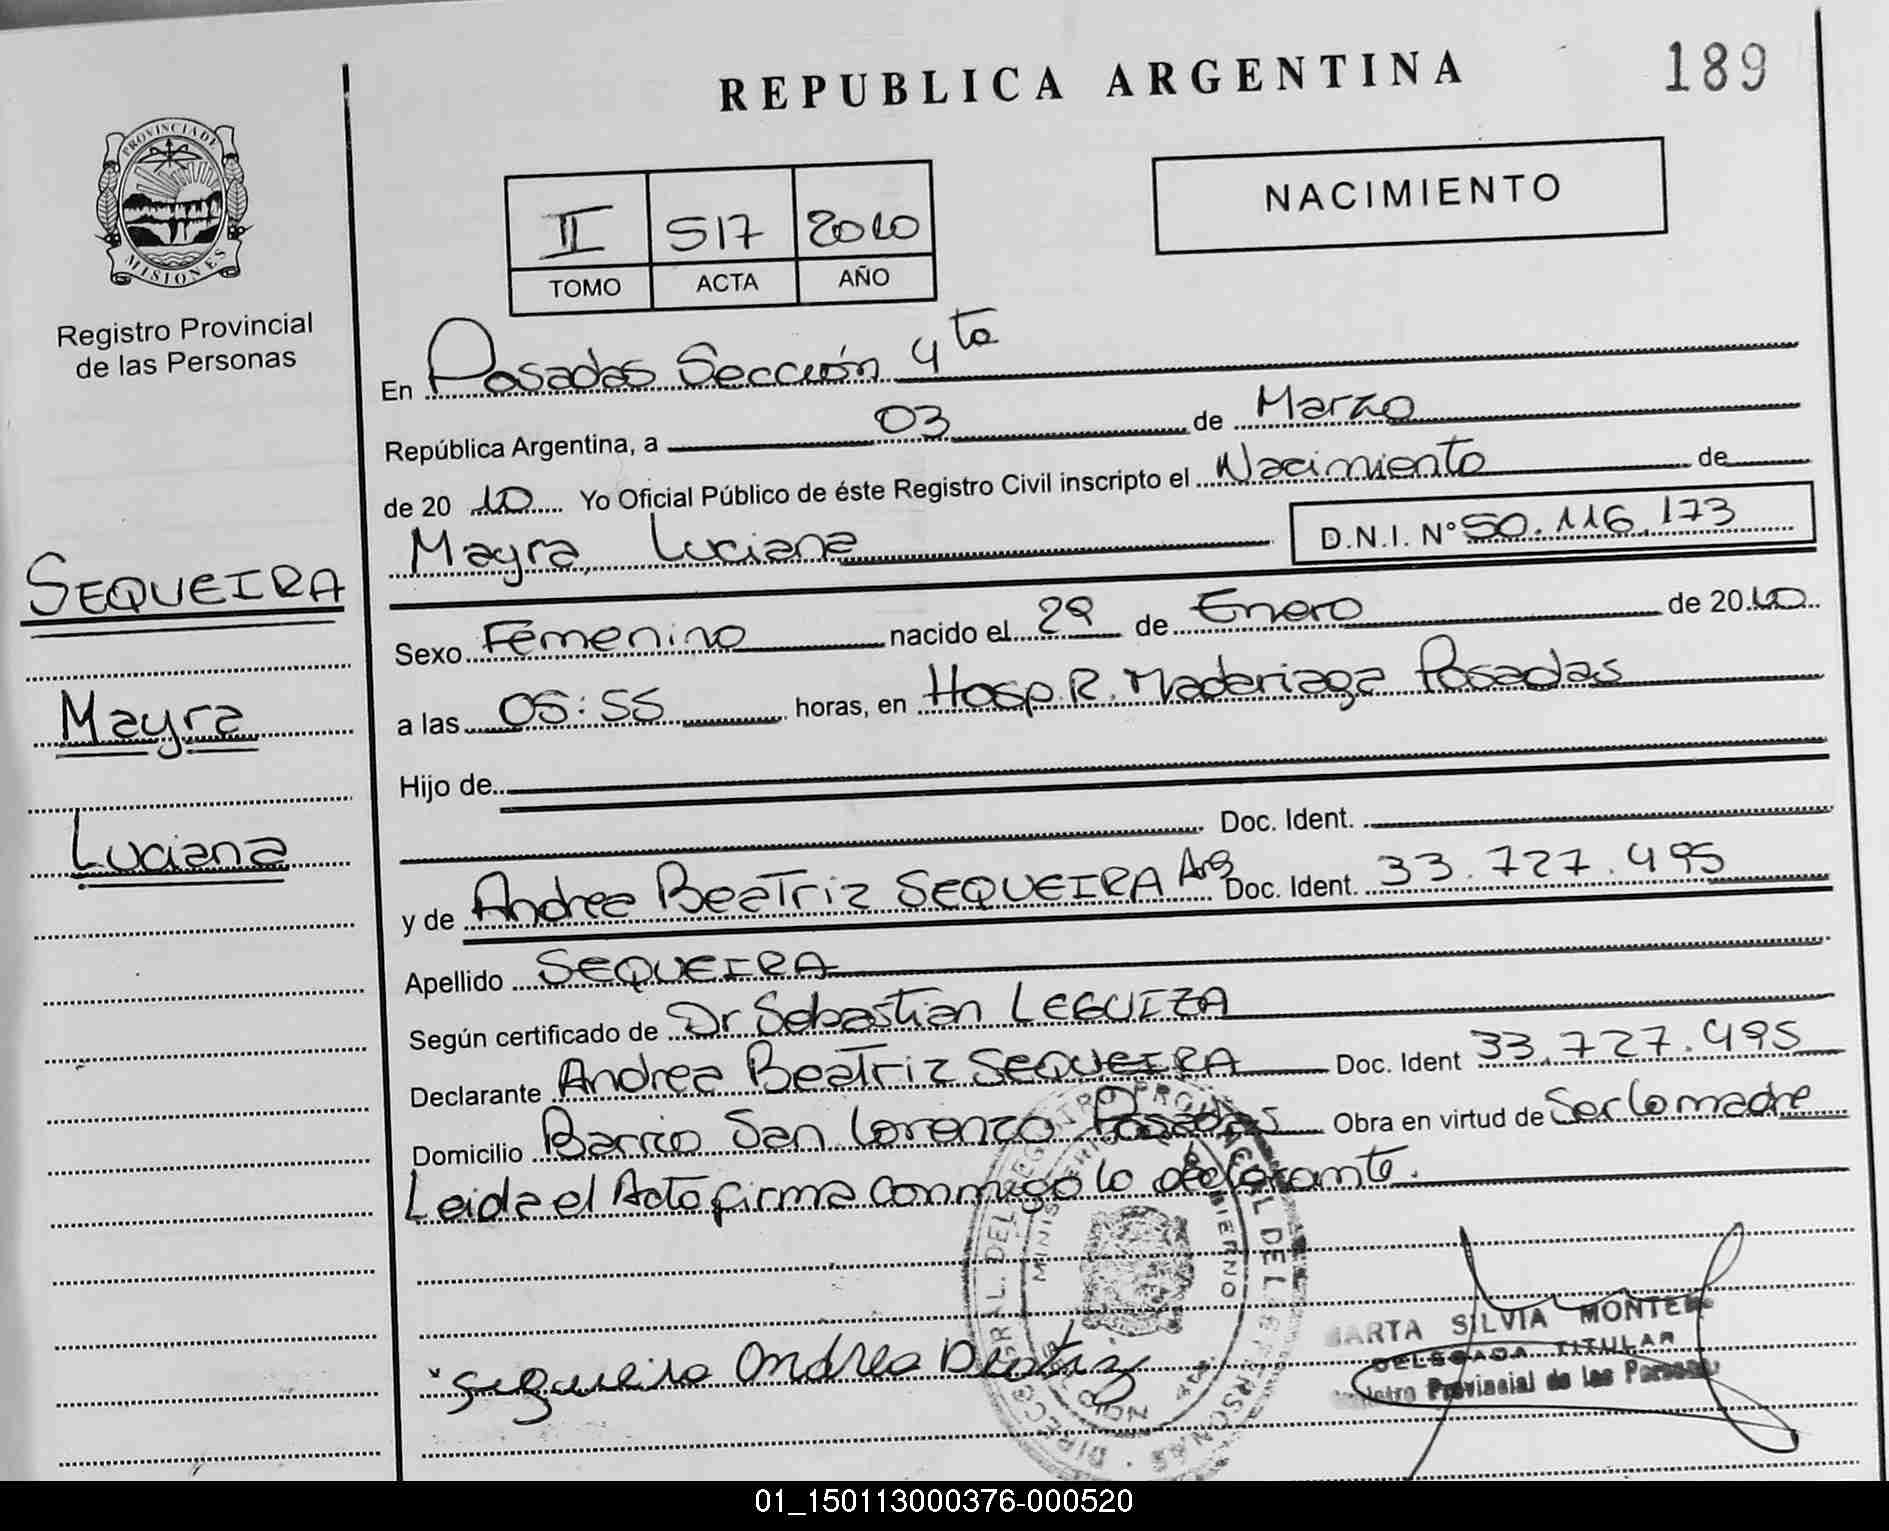 REPUBLICA ARGENTINA
189
PROVINCIA DE
MISIONES
Registro Provincial
de las Personas
NACIMIENTO
II 517 2010
TOMO ACTA AÑO
En Posadas Sección 4ta
República Argentina, a 03 de Marzo
de 2010 Yo Oficial Público de éste Registro Civil inscripto el Nacimiento de
Mayra, Luciana D.N.I. Nº 50.116.173
SEQUEIRA
Mayra
Luciana
Sexo Femenino nacido el 29 de Enero de 2010
a las 05:55 horas, en Hosp. R. Madariaga Posadas
Hijo de
Doc. Ident.
y de Andrea Beatriz SEQUEIRA Arg Doc. Ident. 33.727.495
Apellido SEQUEIRA
Según certificado de Dr Sebastian LEGUIZA
Declarante Andrea Beatriz SEQUEIRA Doc. Ident 33.727.495
Domicilio Barrio San Lorenzo Posadas Obra en virtud de Ser la madre
Leida el Acta firma conmigo la declarante.
Sequeira Andrea Beatriz
MARTA SILVIA MONTE
DELEGADA TITULAR
Provincial de las Personas
01_150113000376-000520